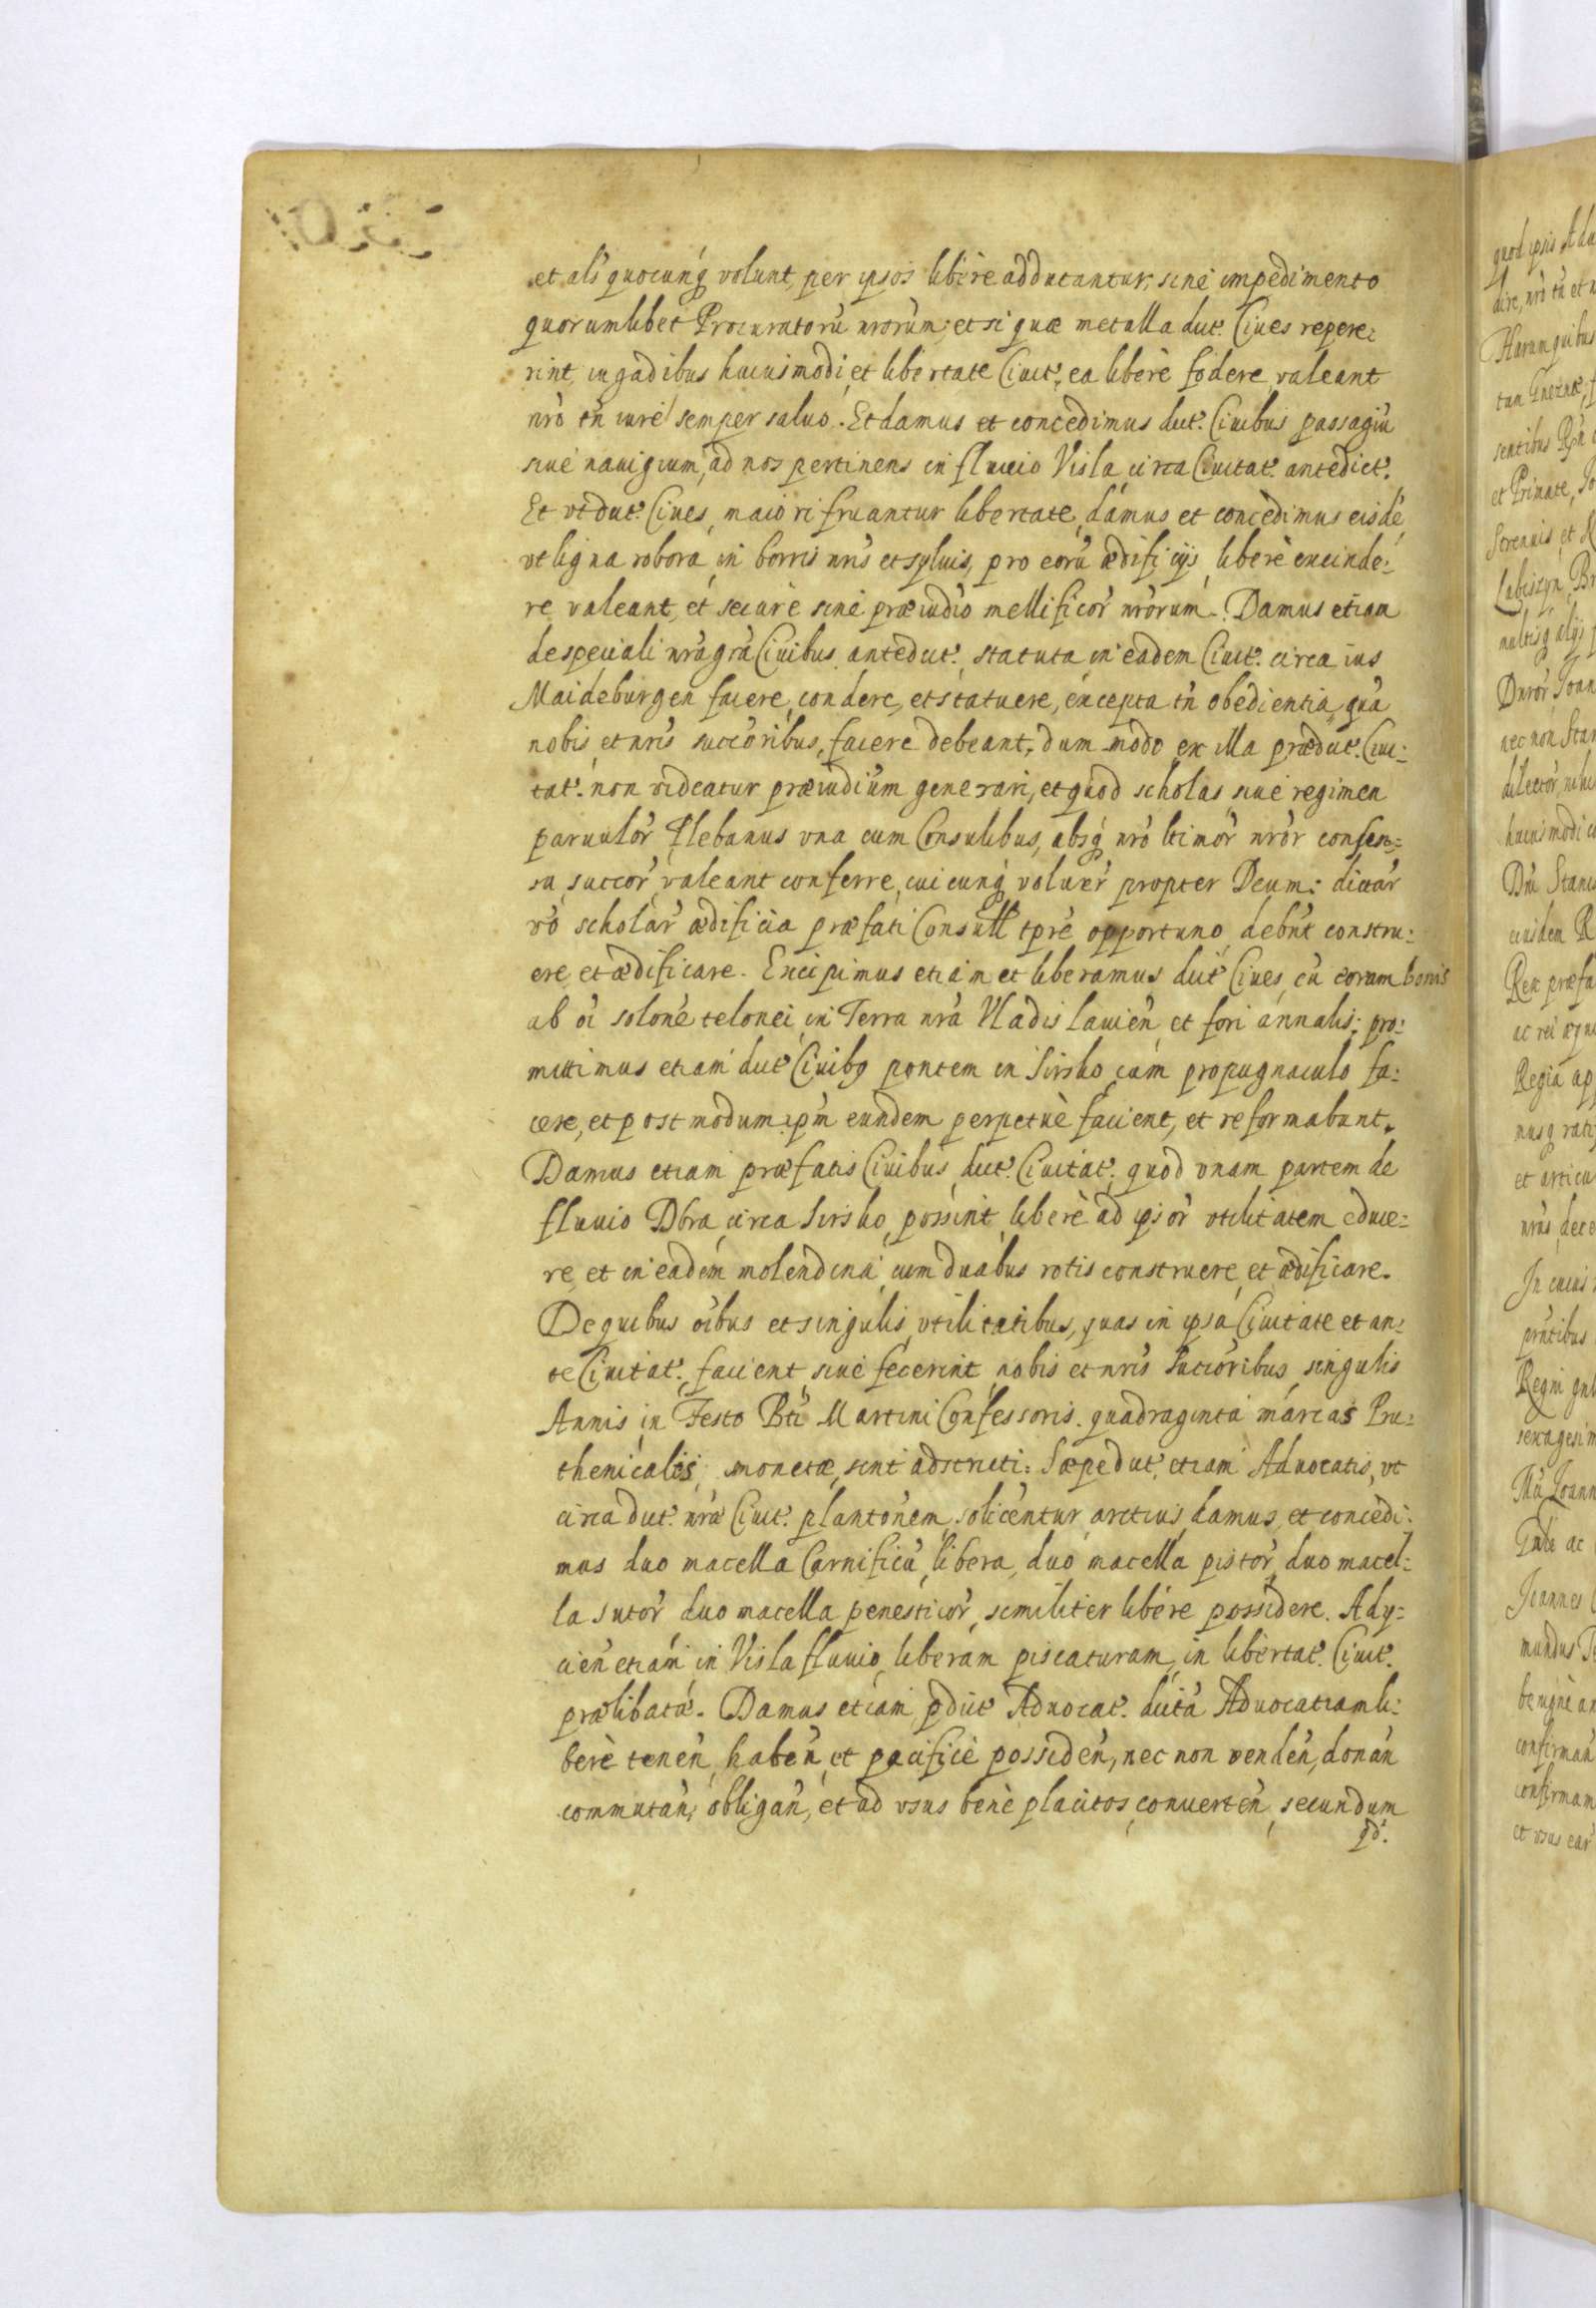 et als quocunq volunt, per ipsos libere adducantur, sine impedimento
quorumlibet Procuratorũ nrorum, et si quæ metalla dict. Ciues repere:
rint, in gadibus huiusmodi, et libertate Ciuit, ea liberè fodere valeant
nro tñ iure semper saluo. Et damus et concedimus dict. Ciuibus passagiũ
siue nauigium, ad nos pertinens in fluuio Visla, circa Ciuitat. antedict.
Et vt dict. Ciues, maiori fruantur libertate, damus et concedimus eisdẽ
vt ligna robora, in borris nris et syluis, pro eorũ ædificijs, liberè excinde:
re valeant, et secure sine præiudio mellificor nrorum. Damus etiam
de speciali nra gra Ciuibus antedict. statuta in eadem Ciuit. circa ius
Maideburgen facere, condere, et statuere, excepta tñ obedientia, quã
nobis, et nris succoribus, facere debeant, dum modo ex illa prædict. Ciui:
tat. non videatur præiudium generari, et quod scholas siue regimen
paruulor Plebanus vna cum Consulibus, absq nro ltimor nror consen:
su, succor, valeant conferre, cuicunq voluer propter Deum: dictar
vo scholar ædificia præfati Consull tpre opportuno, debnt constru:
ere et ædificare. Excipimus etiam et liberamus dict Ciues, cũ eorum bonis
ab oi solone telonei, in Terra nra Vladislauien, et fori annalis; pro:
mittimus etiam dict Ciuibq pontem in Sirsko cum propugnaculo fa:
cere, et post modum ipm eundem perpetuè facient, et reformabunt.
Damus etiam præfatis Ciuibus dict. Ciuitat. quod vnam partem de
fluuio Dbra, circa Sirsko, possint, liberè ad ipsor vtilitatem educe:
re, et in eadem molendina, cum duabus rotis construere, et ædificare.
De quibus oibus et singulis, vtilitatibus, quas in ipsa Ciuitate et an:
te Ciuitat. facient, siue fecerint, nobis et nris succoribus, singulis
Annis, in Festo Bti Martini Confessoris. quadraginta marcas Pru:
thenicalis, monetæ, sint adstricti: Sæpe dict. etiam Aduocatis, vt
circa dict. nra Ciuit. plantonem, solicentur, arctius, damus, et concedi:
mus duo macella Carnificũ, libera, duo macella pistor, duo macel:
la sutor duo macella penesticor, similiter libere possidere. Adij:
cien etiam in Visla fluuio, liberam piscaturam, in libertat. Ciuit.
prælibatæ. Damus etiam pdict Aduocat. dicta Aduocatiam li:
berè tenen, haben, et pacificè possiden, nec non venden, donan
commutan, obligan, et ad vsus bene placitos, conuerten, secundum
qd.